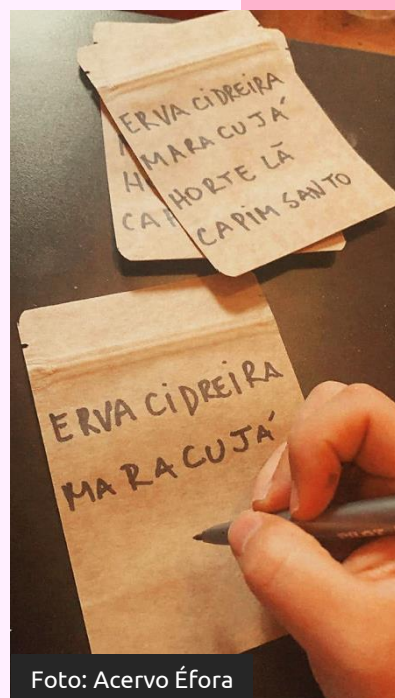 ERVA CIDREIRA
MARACUJÁ
HORTE LÃ
CAPIM SANTO
H
CA
ERVA CIDREIRA
MARACUJÁ
PILOT
Foto: Acervo Éfora